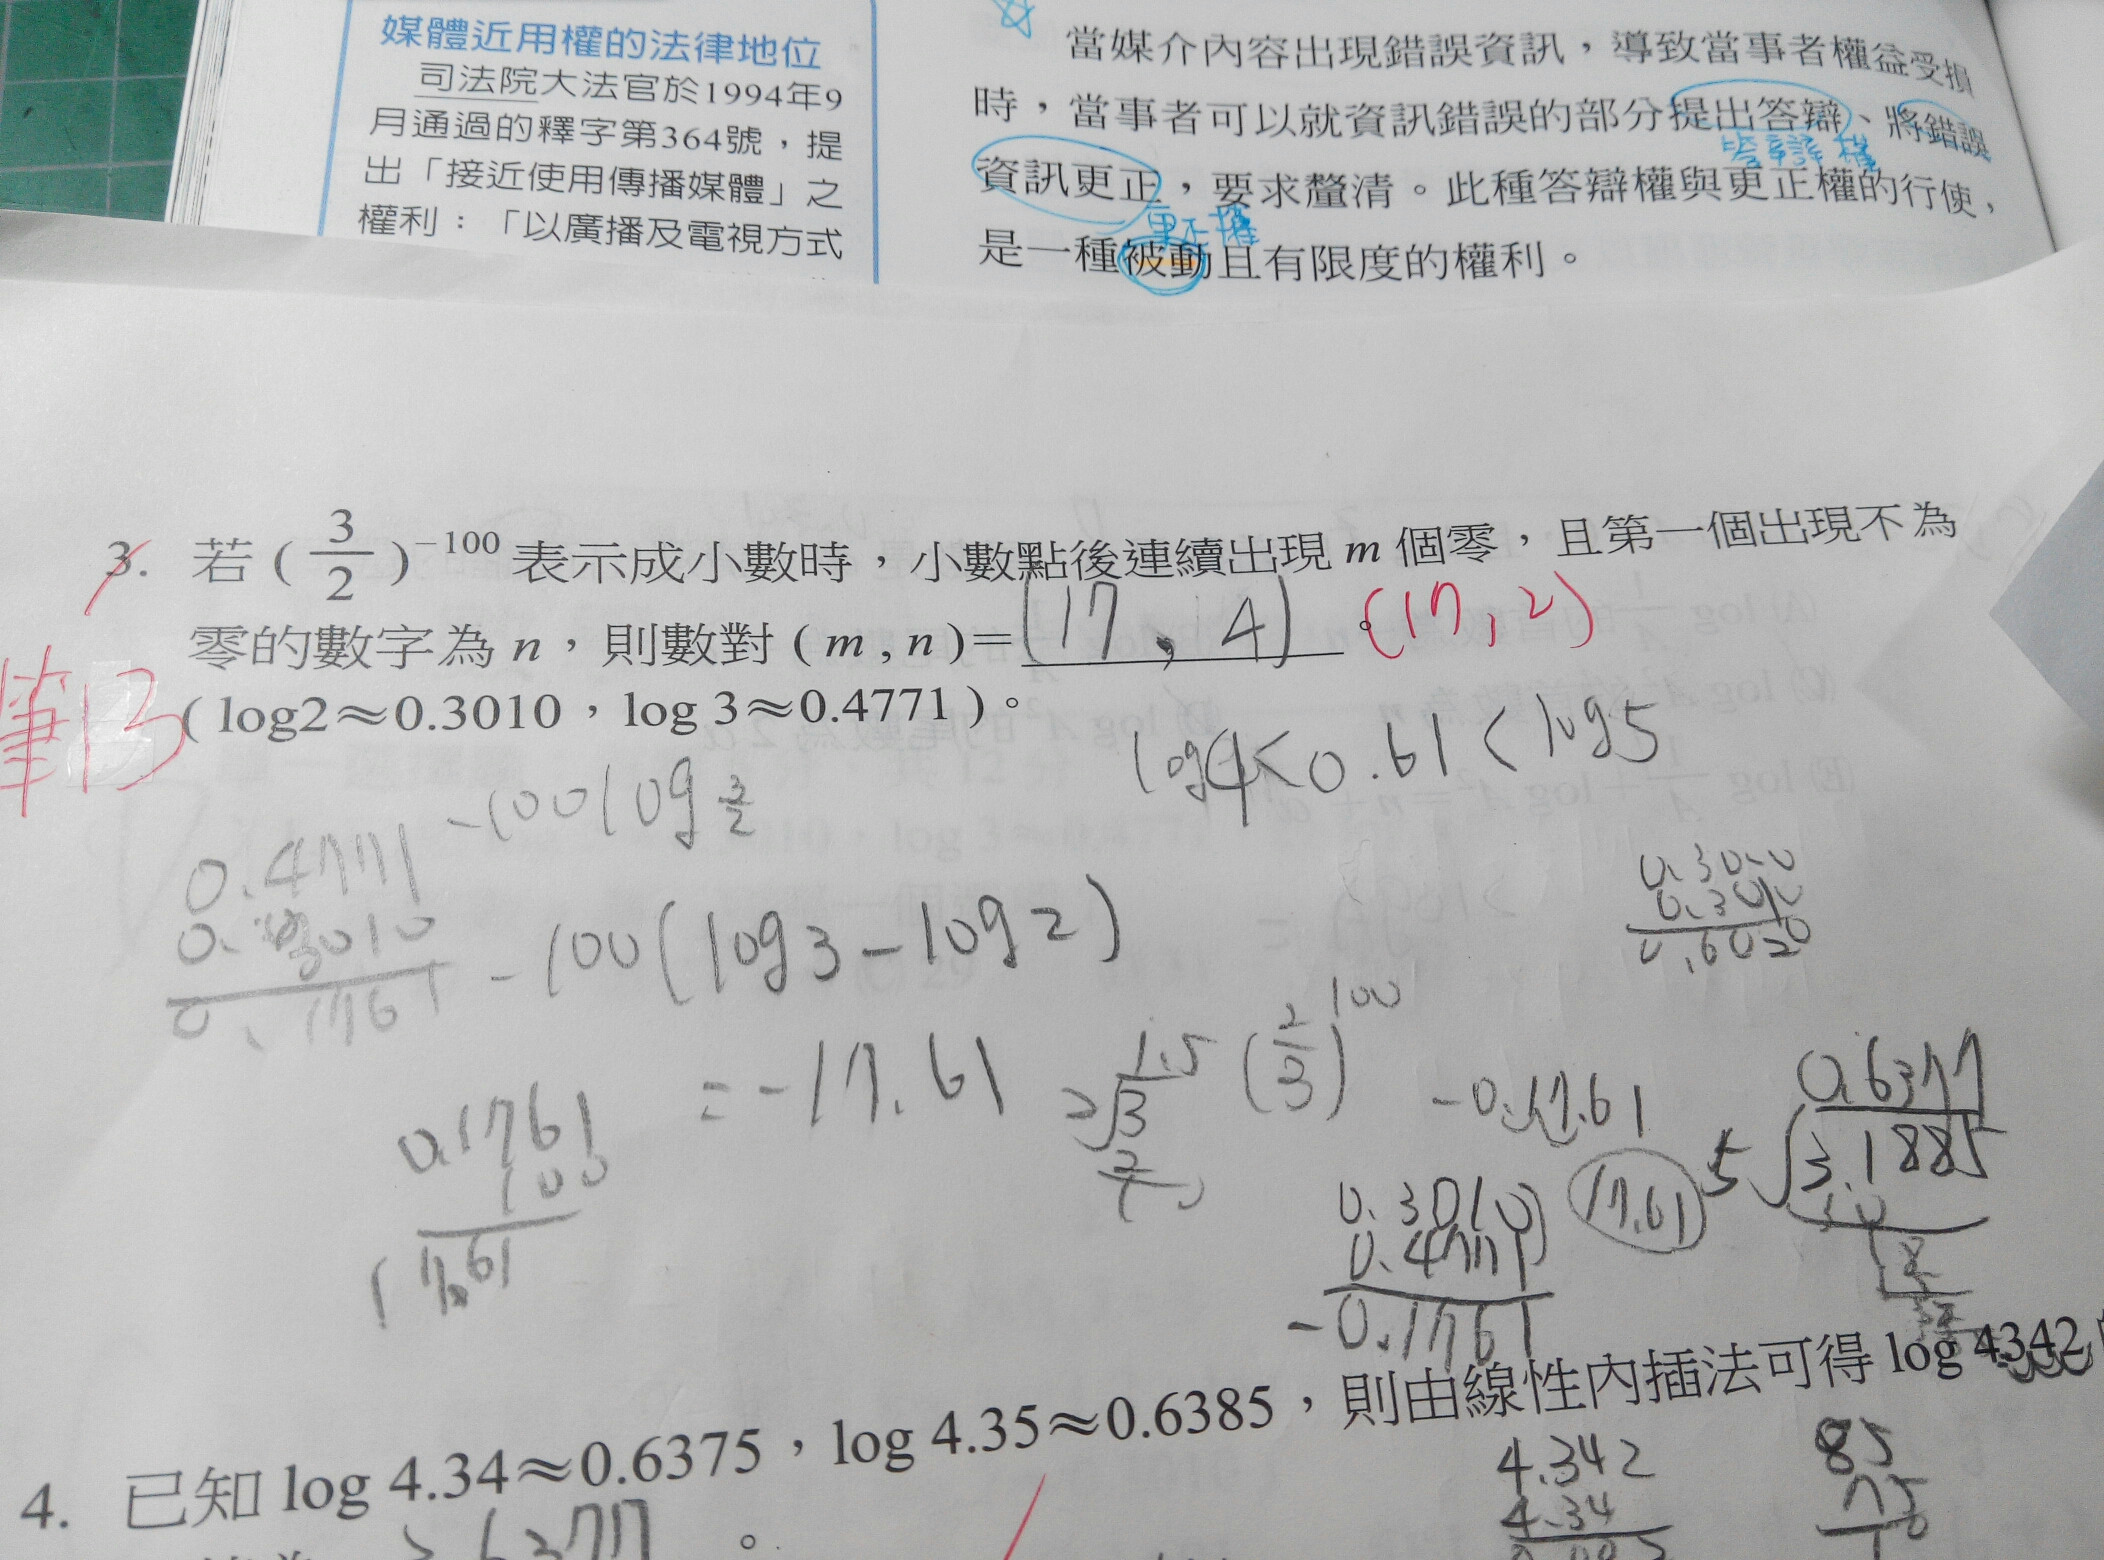 媒體近用權的法律地位
司法院大法官於1994年9
月通過的釋字第364號，提
出「接近使用傳播媒體」之
權利：「以廣播及電視方式
當媒介內容出現錯誤資訊，導致當事者權益受損
時，當事者可以就資訊錯誤的部分提出答辯、將錯誤
答辯權
資訊更正，要求釐清。此種答辯權與更正權的行使，
更正權
是一種被動且有限度的權利。
3. 若 ( 3/2 )^-100 表示成小數時，小數點後連續出現 m 個零，且第一個出現不為
零的數字為 n，則數對 ( m , n )= (17 , 4) 。 (17, 2)
筆13
( log2≈0.3010，log 3≈0.4771 )。
log4<0.61<log5
-100log 3/2
0.4771
0.3010
0.1761
-100(log3-log2)
0.3010
0.6020
=-17.61
2 3 1.5
(2/3)^100
0.1761
100
17.61
-0.17.61
0.3010
0.4771
-0.1761
17.61
0.6377
5 3.1885
4. 已知 log 4.34≈0.6375，log 4.35≈0.6385，則由線性內插法可得 log 4342
4.342
4.34
85
75
10
3.6377 。